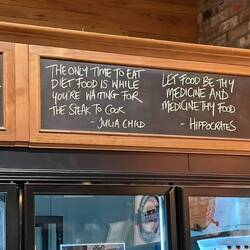 THE ONLY TIME TO EAT
DIET FOOD IS WHILE
YOU'RE WAITING FOR
THE STEAK TO COOK
- JULIA CHILD
LET FOOD BE THY
MEDICINE AND
MEDICINE THY FOOD
- HIPPOCRATES